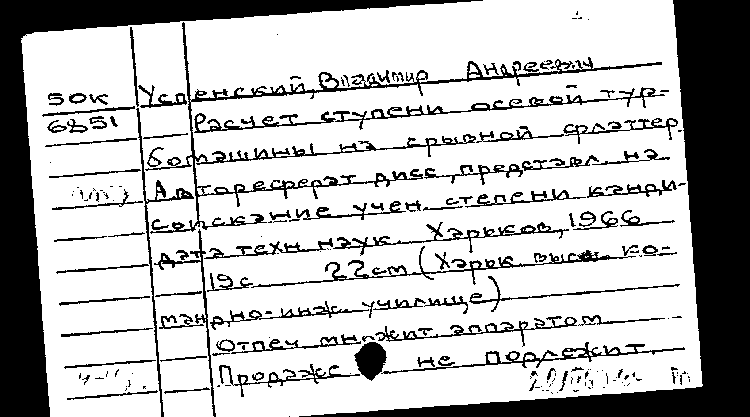 50к Успенский, Владимир Андреевич
6851 Расчет ступени осевой тур-
бомашины на срывной флаттер.
Автореферат дисс., представл. на
соискание учен. степени канди-
дата техн. наук. Харьков, 1966
19с. 22см. (Харьк. высш. ко-
мандно-инж. училище)
Отпеч. множит. аппаратом
Продаже не подлежит.